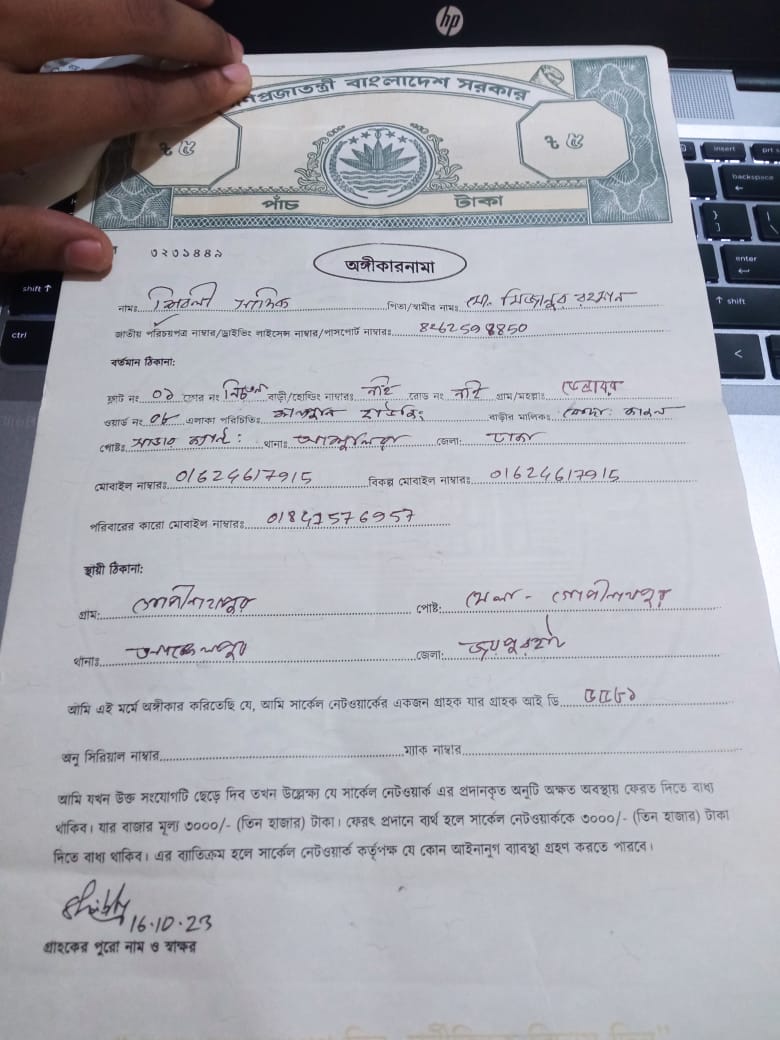 hp
গনপ্রজাতন্ত্রী বাংলাদেশ সরকার
৳ ৫ ৳ ৫
পাঁচ টাকা
৩২৩১৪৪৯
অঙ্গীকারনামা
নামঃ শিবলী সাদিক পিতা/স্বামীর নামঃ মো. মিজানুর রহমান
জাতীয় পরিচয়পত্র নাম্বার/ড্রাইভিং লাইসেন্স নাম্বার/পাসপোর্ট নাম্বারঃ
বর্তমান ঠিকানা:
ফ্লাট নং ০১ ফ্লোর নং নিচতলা বাড়ী/হোল্ডিং নাম্বারঃ নাই রোড নং নাই গ্রাম/মহল্লাঃ
ওয়ার্ড নং ০৮ এলাকা পরিচিতিঃ হাউজিং বাড়ীর মালিকঃ
পোষ্টঃ সাভার ক্যান্ট: থানাঃ আশুলিয়া জেলা: ঢাকা
মোবাইল নাম্বারঃ 01624617915 বিকল্প মোবাইল নাম্বারঃ 01624617915
পরিবারের কারো মোবাইল নাম্বারঃ
স্থায়ী ঠিকানা:
গ্রাম: গোপীনাথপুর পোষ্ট: মেলা - গোপীনাথপুর
থানাঃ আক্কেলপুর জেলা: জয়পুরহাট
আমি এই মর্মে অঙ্গীকার করিতেছি যে, আমি সার্কেল নেটওয়ার্কের একজন গ্রাহক যার গ্রাহক আই ডি
অনু সিরিয়াল নাম্বার ম্যাক নাম্বার
আমি যখন উক্ত সংযোগটি ছেড়ে দিব তখন উল্লেক্ষ্য যে সার্কেল নেটওয়ার্ক এর প্রদানকৃত অনুটি অক্ষত অবস্থায় ফেরত দিতে বাধ্য
থাকিব। যার বাজার মূল্য ৩০০০/- (তিন হাজার) টাকা। ফেরৎ প্রদানে ব্যর্থ হলে সার্কেল নেটওয়ার্ককে ৩০০০/- (তিন হাজার) টাকা
দিতে বাধ্য থাকিব। এর ব্যাতিক্রম হলে সার্কেল নেটওয়ার্ক কর্তৃপক্ষ যে কোন আইনানুগ ব্যাবস্থা গ্রহণ করতে পারবে।
Shibly 16.10.23
গ্রাহকের পুরো নাম ও স্বাক্ষর
insert
prt s
backspace
enter
shift
shift
ctrl